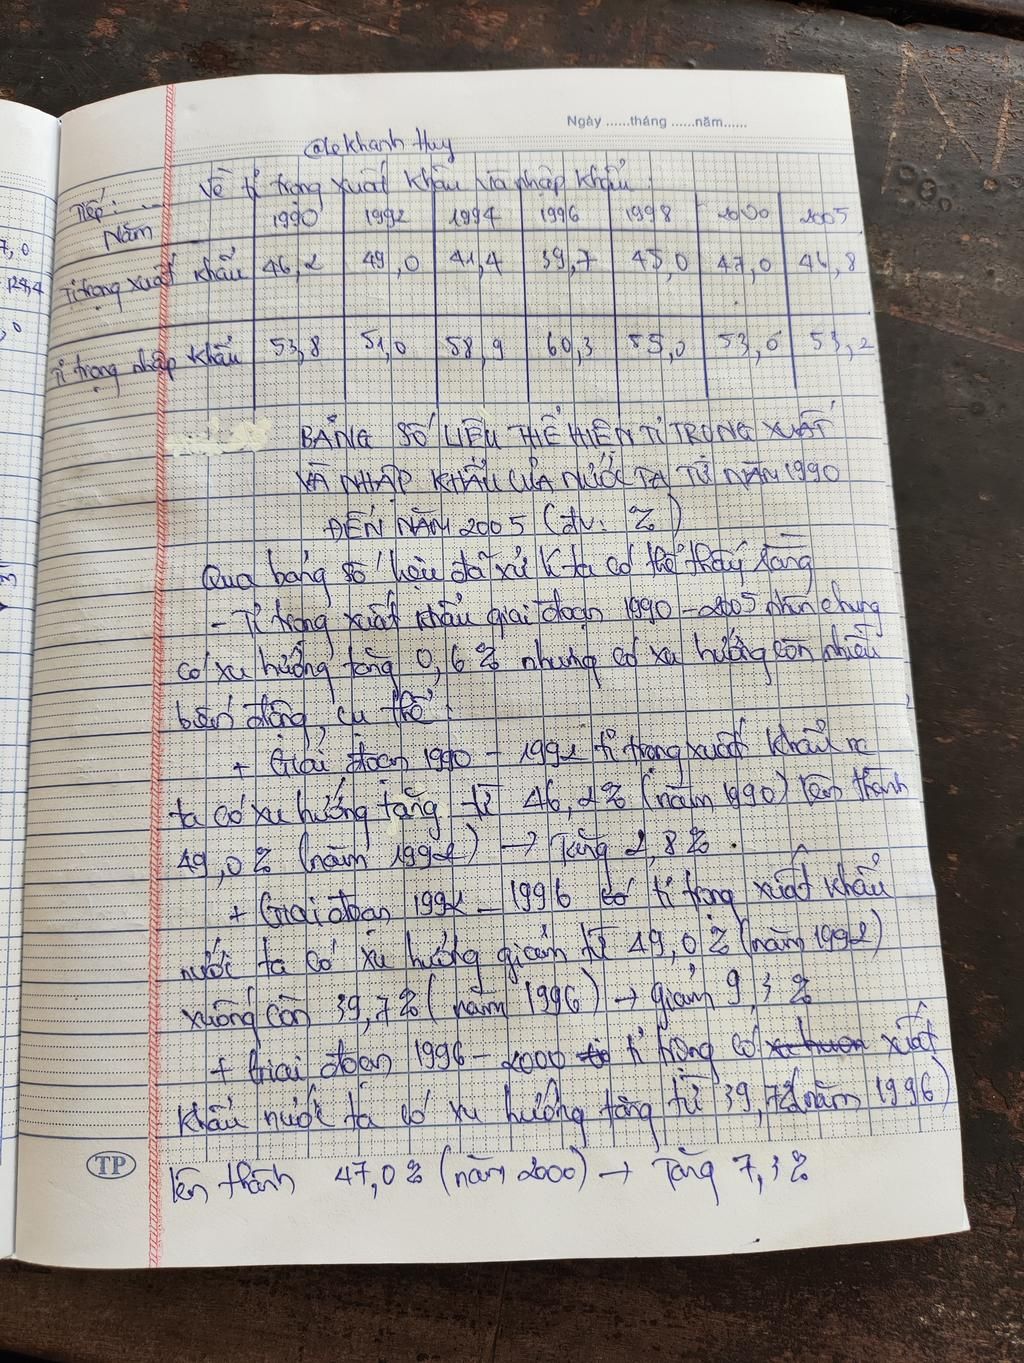 Ngày ......tháng ......năm......
@lekhanh Huy
Tiếp: ... Về tỉ trọng xuất khẩu và nhập khẩu:
Năm 1990 1992 1994 1996 1998 2000 2005
Tỉ trọng xuất khẩu 46,2 49,0 41,4 39,7 45,0 47,0 46,8
Tỉ trọng nhập khẩu 53,8 51,0 58,9 60,3 55,0 53,0 53,2
7,0
124,4
,0
BẢNG SỐ LIỆU THỂ HIỆN TỈ TRỌNG XUẤT
VÀ NHẬP KHẨU CỦA NƯỚC TA TỪ NĂM 1990
ĐẾN NĂM 2005 (đv: %)
Qua bảng số liệu đã xử lí ta có thể thấy rằng
- Tỉ trọng xuất khẩu giai đoạn 1990 - 2005 nhìn chung
có xu hướng tăng 0,6% nhưng có xu hướng còn nhiều
biến động, cụ thể:
+ Giai đoạn 1990 - 1992 tỉ trọng xuất khẩu nc
ta có xu hướng tăng từ 46,2% (năm 1990) lên thành
49,0% (năm 1992) → Tăng 2,8%.
+ Giai đoạn 1992 - 1996 có tỉ trọng xuất khẩu
nước ta có xu hướng giảm từ 49,0% (năm 1992)
xuống còn 39,7% (năm 1996) → giảm 9,3%
+ Giai đoạn 1996 - 2000 tỉ trọng có xu hướn xuất
khẩu nước ta có xu hướng tăng từ 39,7% (năm 1996)
lên thành 47,0% (năm 2000) → Tăng 7,3%
TP